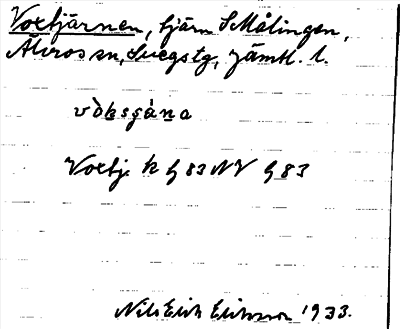 Voxtjärnen, tjärn S Målingen,
Älvros sn, Svegs tg, Jämtl. l.
vòksçà̀na
Voxtj. k G 83 NV G 83
Nils Erik Eliasson 1933.